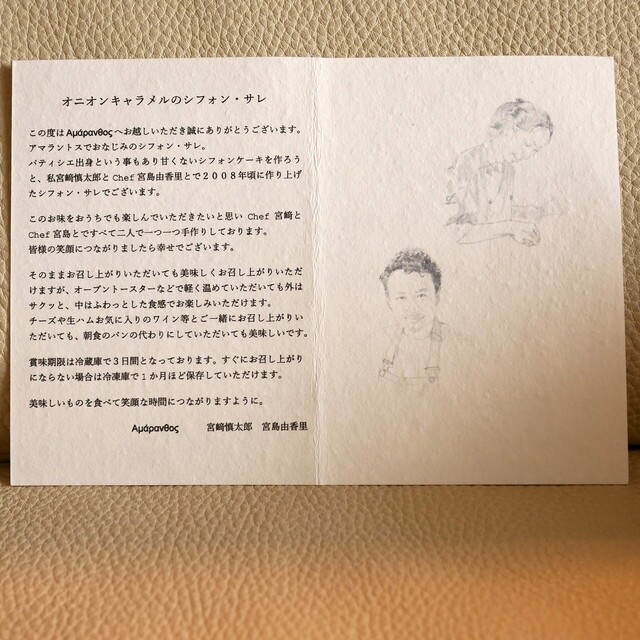 オニオンキャラメルのシフォン・サレ
この度はΑμάρανθοςへお越しいただき誠にありがとうございます。
アマラントスでおなじみのシフォン・サレ。
パティシエ出身という事もあり甘くないシフォンケーキを作ろう
と、私宮﨑慎太郎とChef宮島由香里とで２００８年頃に作り上げ
たシフォン・サレでございます。
このお味をおうちでも楽しんでいただきたいと思い Chef 宮﨑と
Chef 宮島とですべて二人で一つ一つ手作りしております。
皆様の笑顔につながりましたら幸せでございます。
そのままお召し上がりいただいても美味しくお召し上がりいただ
けますが、オーブントースターなどで軽く温めていただいても外は
サクッと、中はふわっとした食感でお楽しみいただけます。
チーズや生ハムお気に入りのワイン等とご一緒にお召し上がりい
ただいても、朝食のパンの代わりにしていただいても美味しいです。
賞味期限は冷蔵庫で３日間となっております。すぐにお召し上がり
にならない場合は冷凍庫で１か月ほど保存していただけます。
美味しいものを食べて笑顔な時間につながりますように。
Αμάρανθος 宮﨑慎太郎 宮島由香里